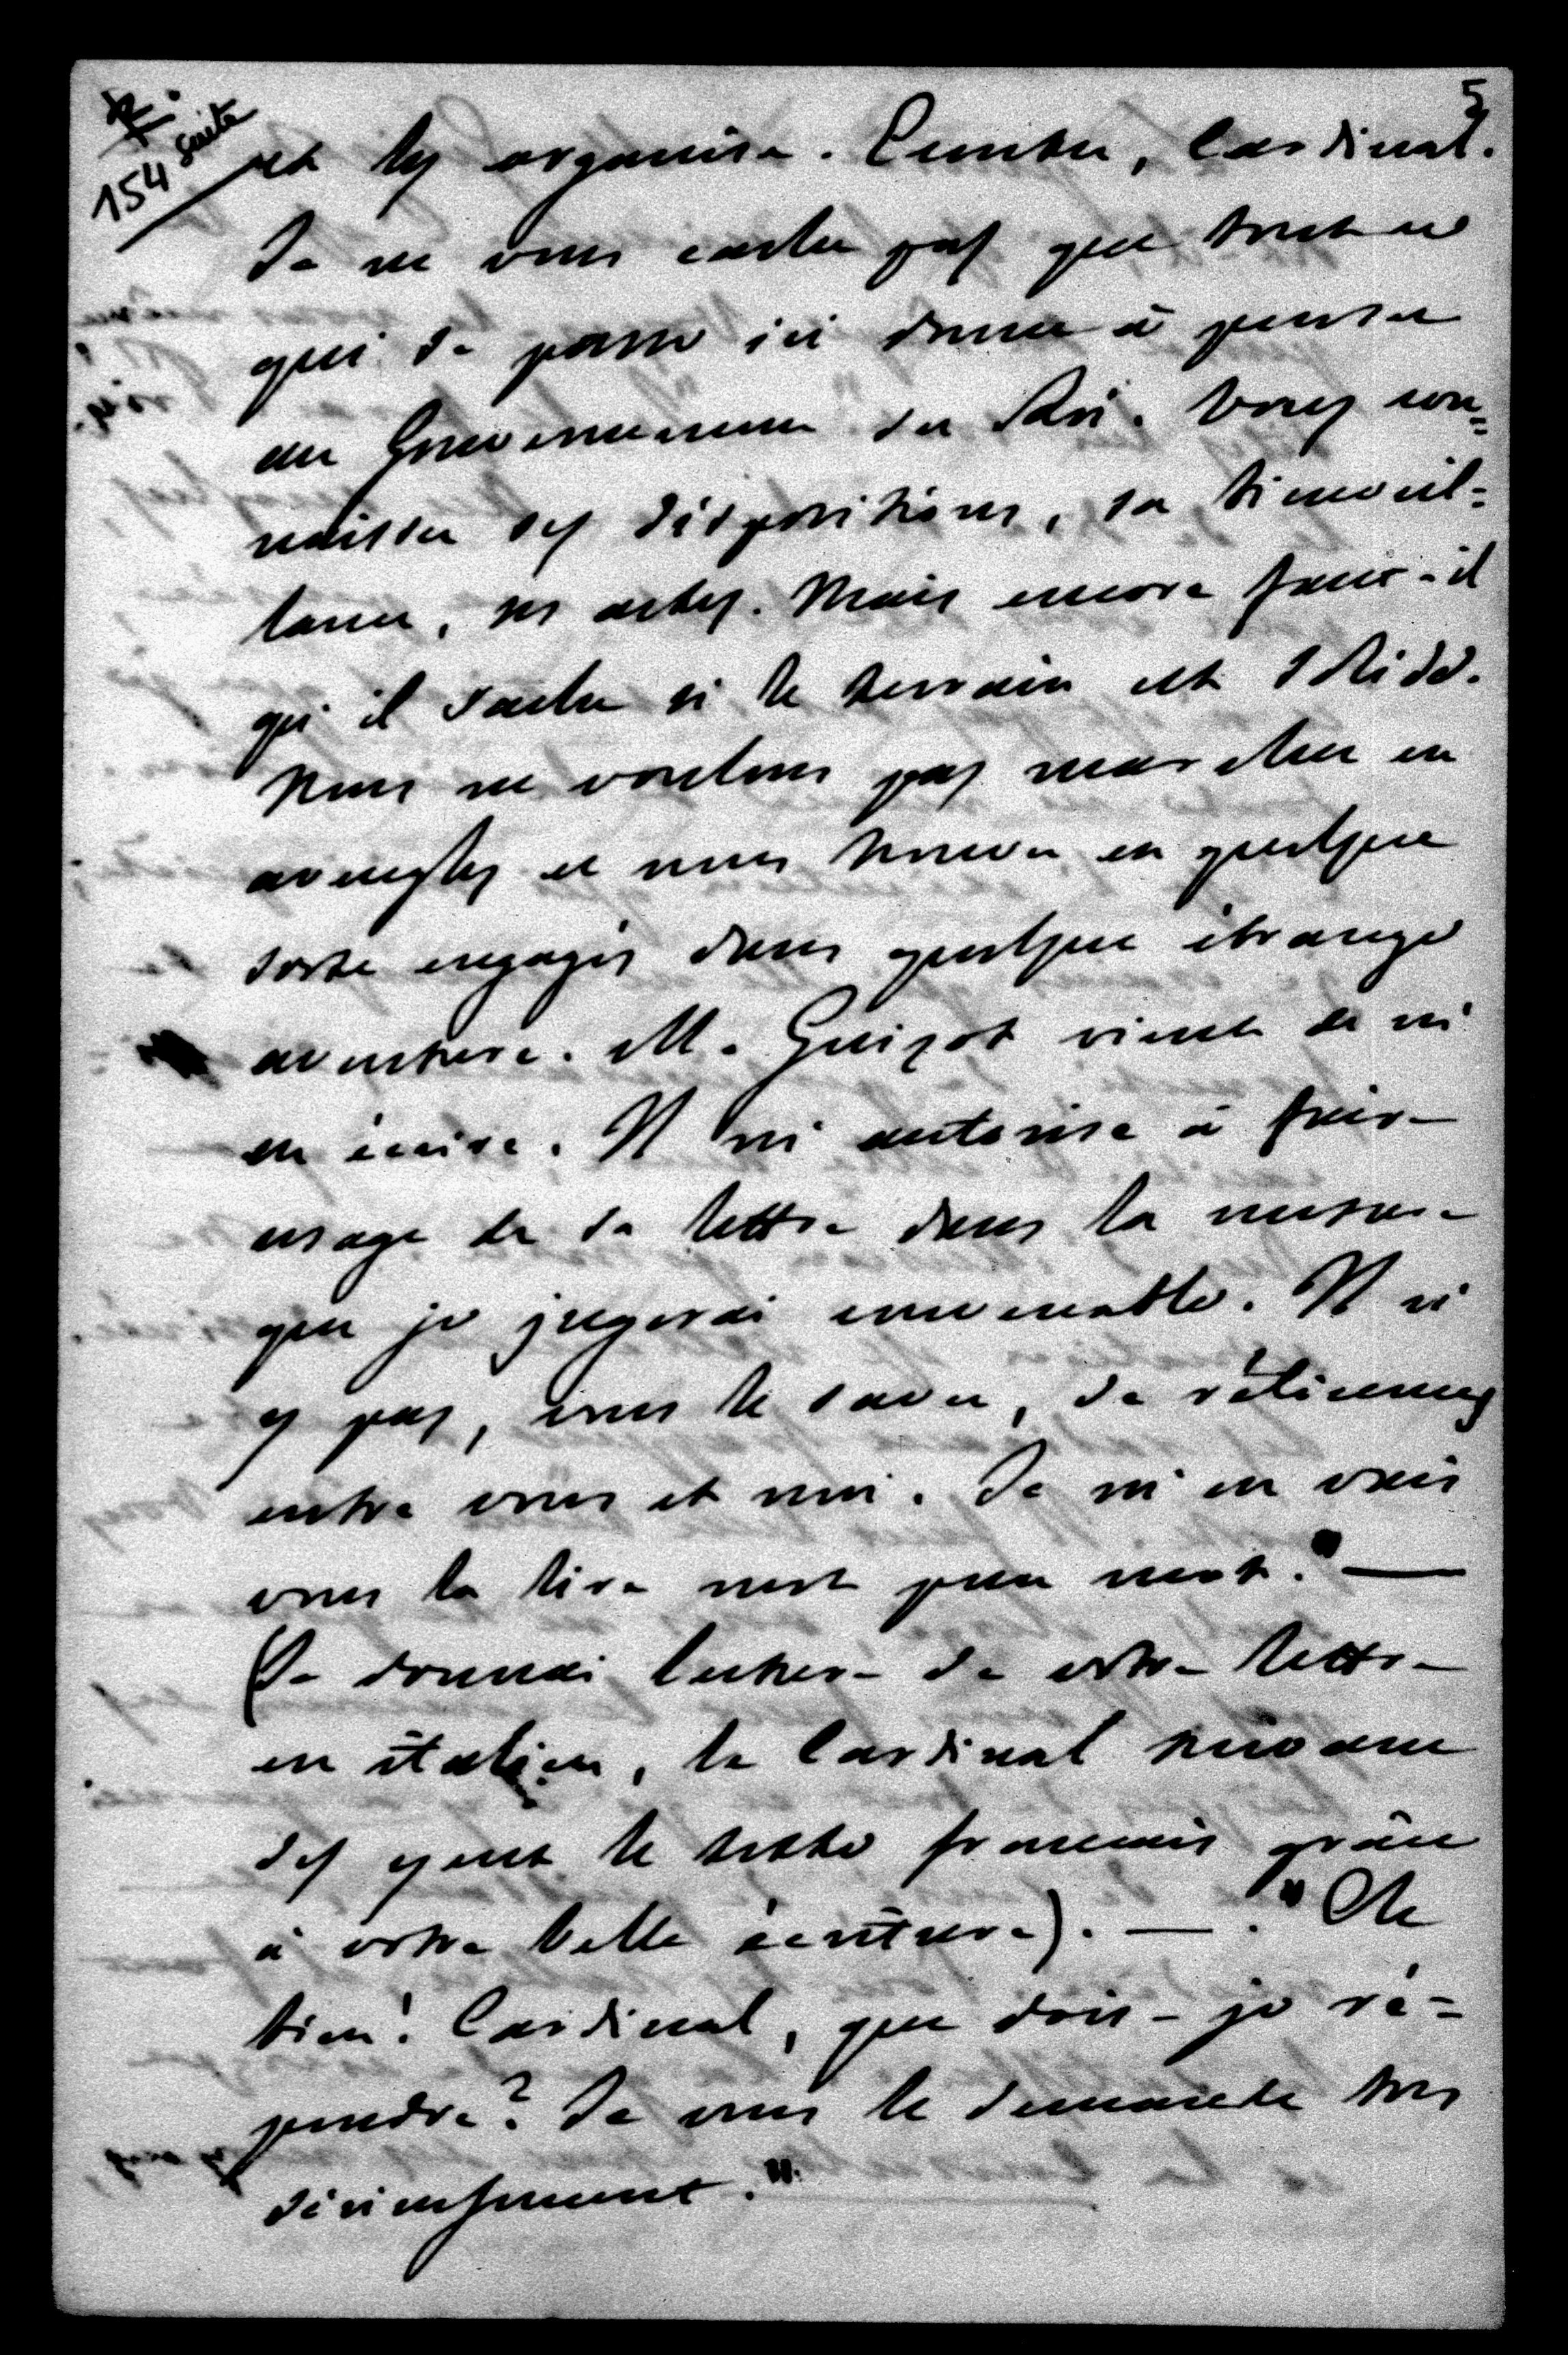 5
154 suite
et les organise. Écoutez, Cardinal.
Je ne vous cache pas que tout ce
qui se passe ici donne à penser
au Gouvernement du Roi. Vous con=
naissez ses dispositions, sa bienveil=
lance, ses actes. Mais encore faut-il
qu'il sache si le terrain est solide.
Nous ne voulons pas marcher en
aveugles et nous trouver en quelque
sorte engagés dans quelque étrange
aventure. M. Guizot vient de m'
en écrire. Il m'autorise à faire
usage de sa lettre dans la mesure
que je jugerai convenable. Il n'
y a pas, vous le savez, de réticences
entre vous et moi. Je m'en vais
vous la lire mot pour mot." —
(Je donnai lecture de votre lettre
en italien, le Cardinal suivant
des yeux le texte français grâce
à votre belle écriture). — "Eh
bien! Cardinal, que dois-je ré=
pondre? Je vous le demande très
sérieusement."